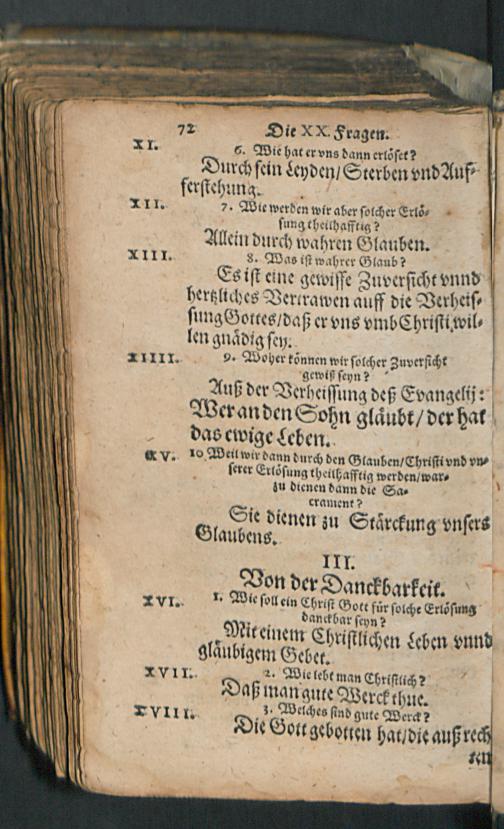 72 Die XX. Fragen.
XI. 6. Wie hat er vns dann erlöset?
Durch sein Leyden/Sterben vnd Auf-
ferstehung.
XII. 7. Wie werden wir aber solcher Erlö-
sung theilhafftig?
Allein durch wahren Glauben.
XIII. 8. Was ist wahrer Glaub?
Es ist eine gewisse Zuversicht vnnd
hertzliches Vertrawen auff die Verheis-
sung Gottes/daß er vns vmb Christi wil-
len gnädig sey.
XIIII. 9. Woher können wir solcher Zuversicht
gewiß seyn?
Auß der Verheissung deß Evangelij:
Wer an den Sohn gläubt/der hat
das ewige Leben.
XV. 10 Weil wir dann durch den Glauben/Christi vnd vn-
serer Erlösung theilhafftig werden/war-
zu dienen dann die Sa-
crament?
Sie dienen zu Stärckung vnsers
Glaubens.
III.
Von der Danckbarkeit.
XVI. 1. Wie soll ein Christ Gott für solche Erlösung
danckbar seyn?
Mit einem Christlichen Leben vnnd
gläubigem Gebet.
XVII. 2. Wie lebt man Christlich?
Daß man gute Werck thue.
XVIII. 3. Welches sind gute Werck?
Die Gott gebotten hat/die auß rech
ten